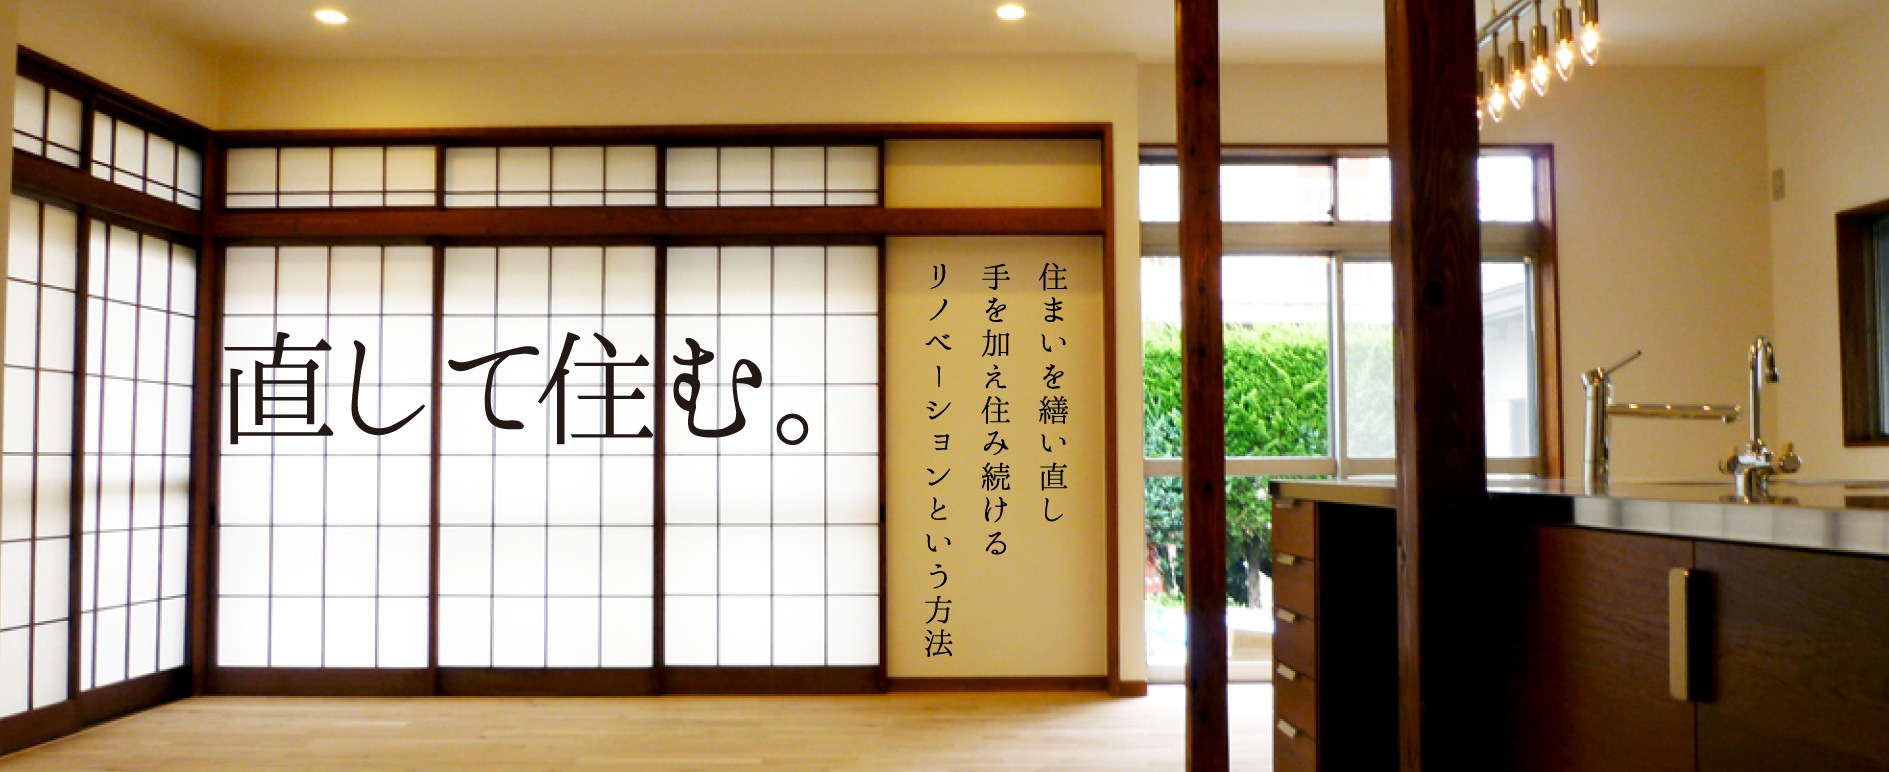 直して住む。
住まいを繕い直し
手を加え住み続ける
リノベーションという方法